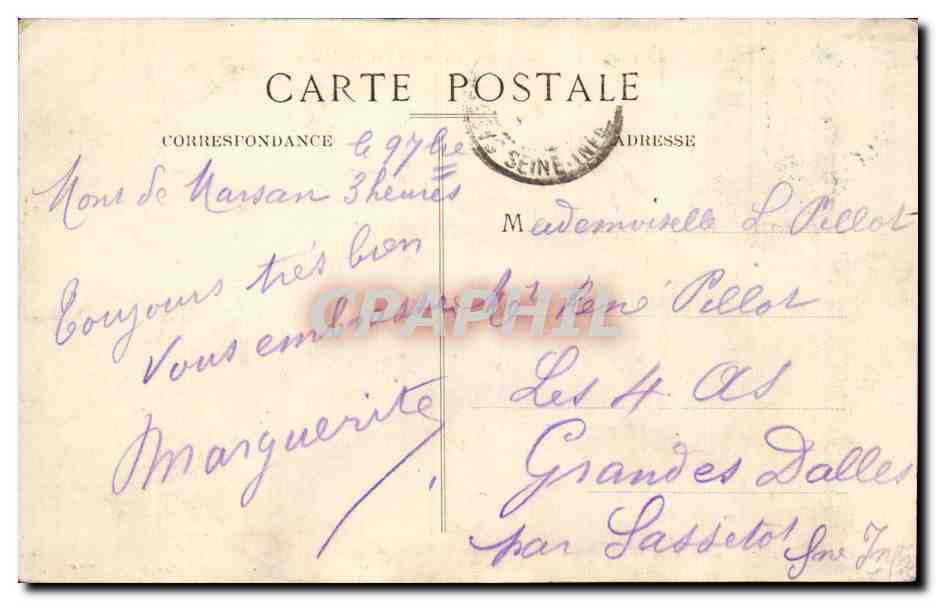 CARTE POSTALE
CORRESPONDANCE
ADRESSE
SEINE-INF
le 9 7bre
Mont de Marsan 3 heures
Toujours très bien
Vous embrasse
Marguerite
Mademoiselle L. Pillot
René Pillot
Les 4 As
Grandes Dalles
par Sassetot Sne Inf
CPAPHIL